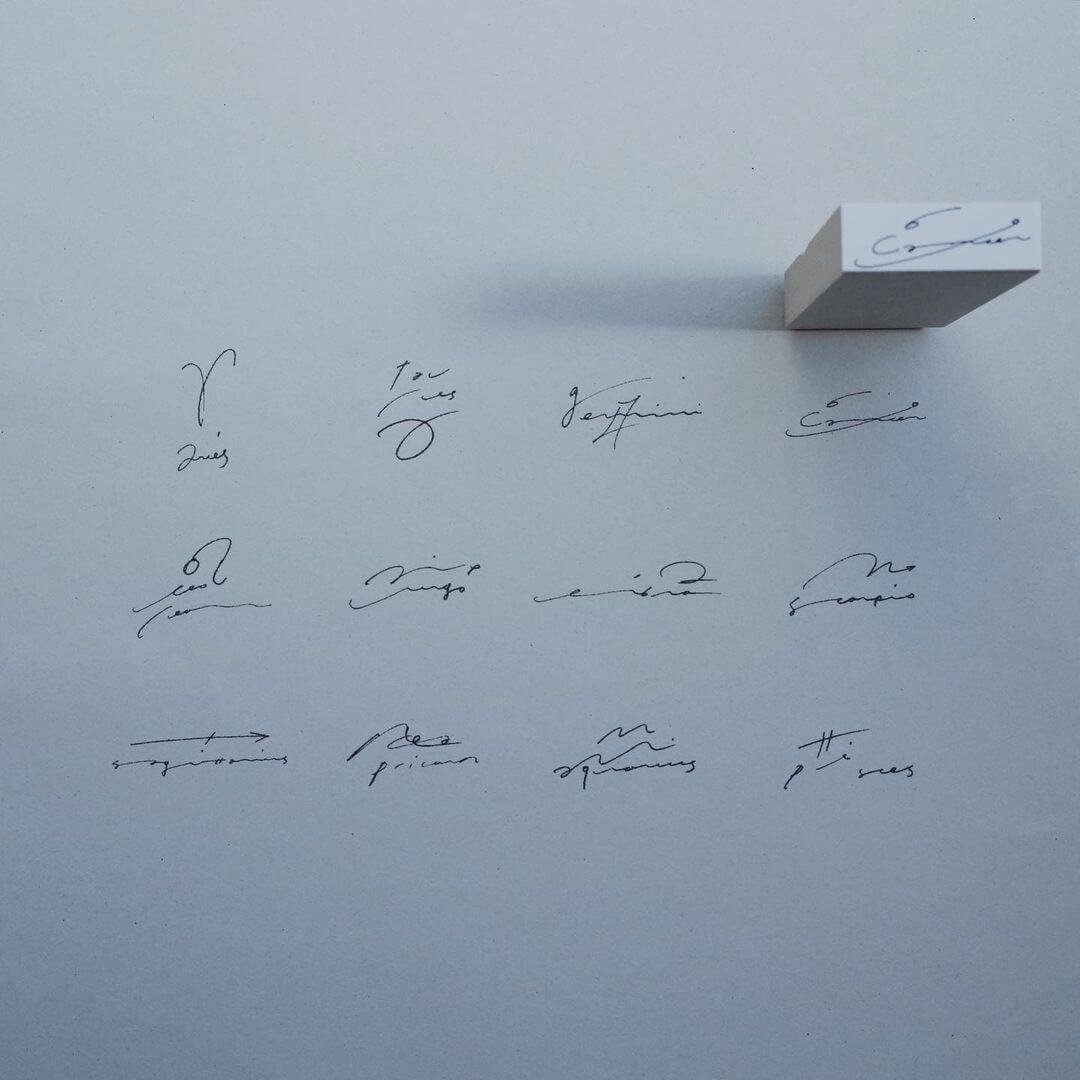 cancer
aries
tau
rus
gemini
cancer
leo
virgo
libra
scorpio
sagittarius
pricorn
aquarius
pisces